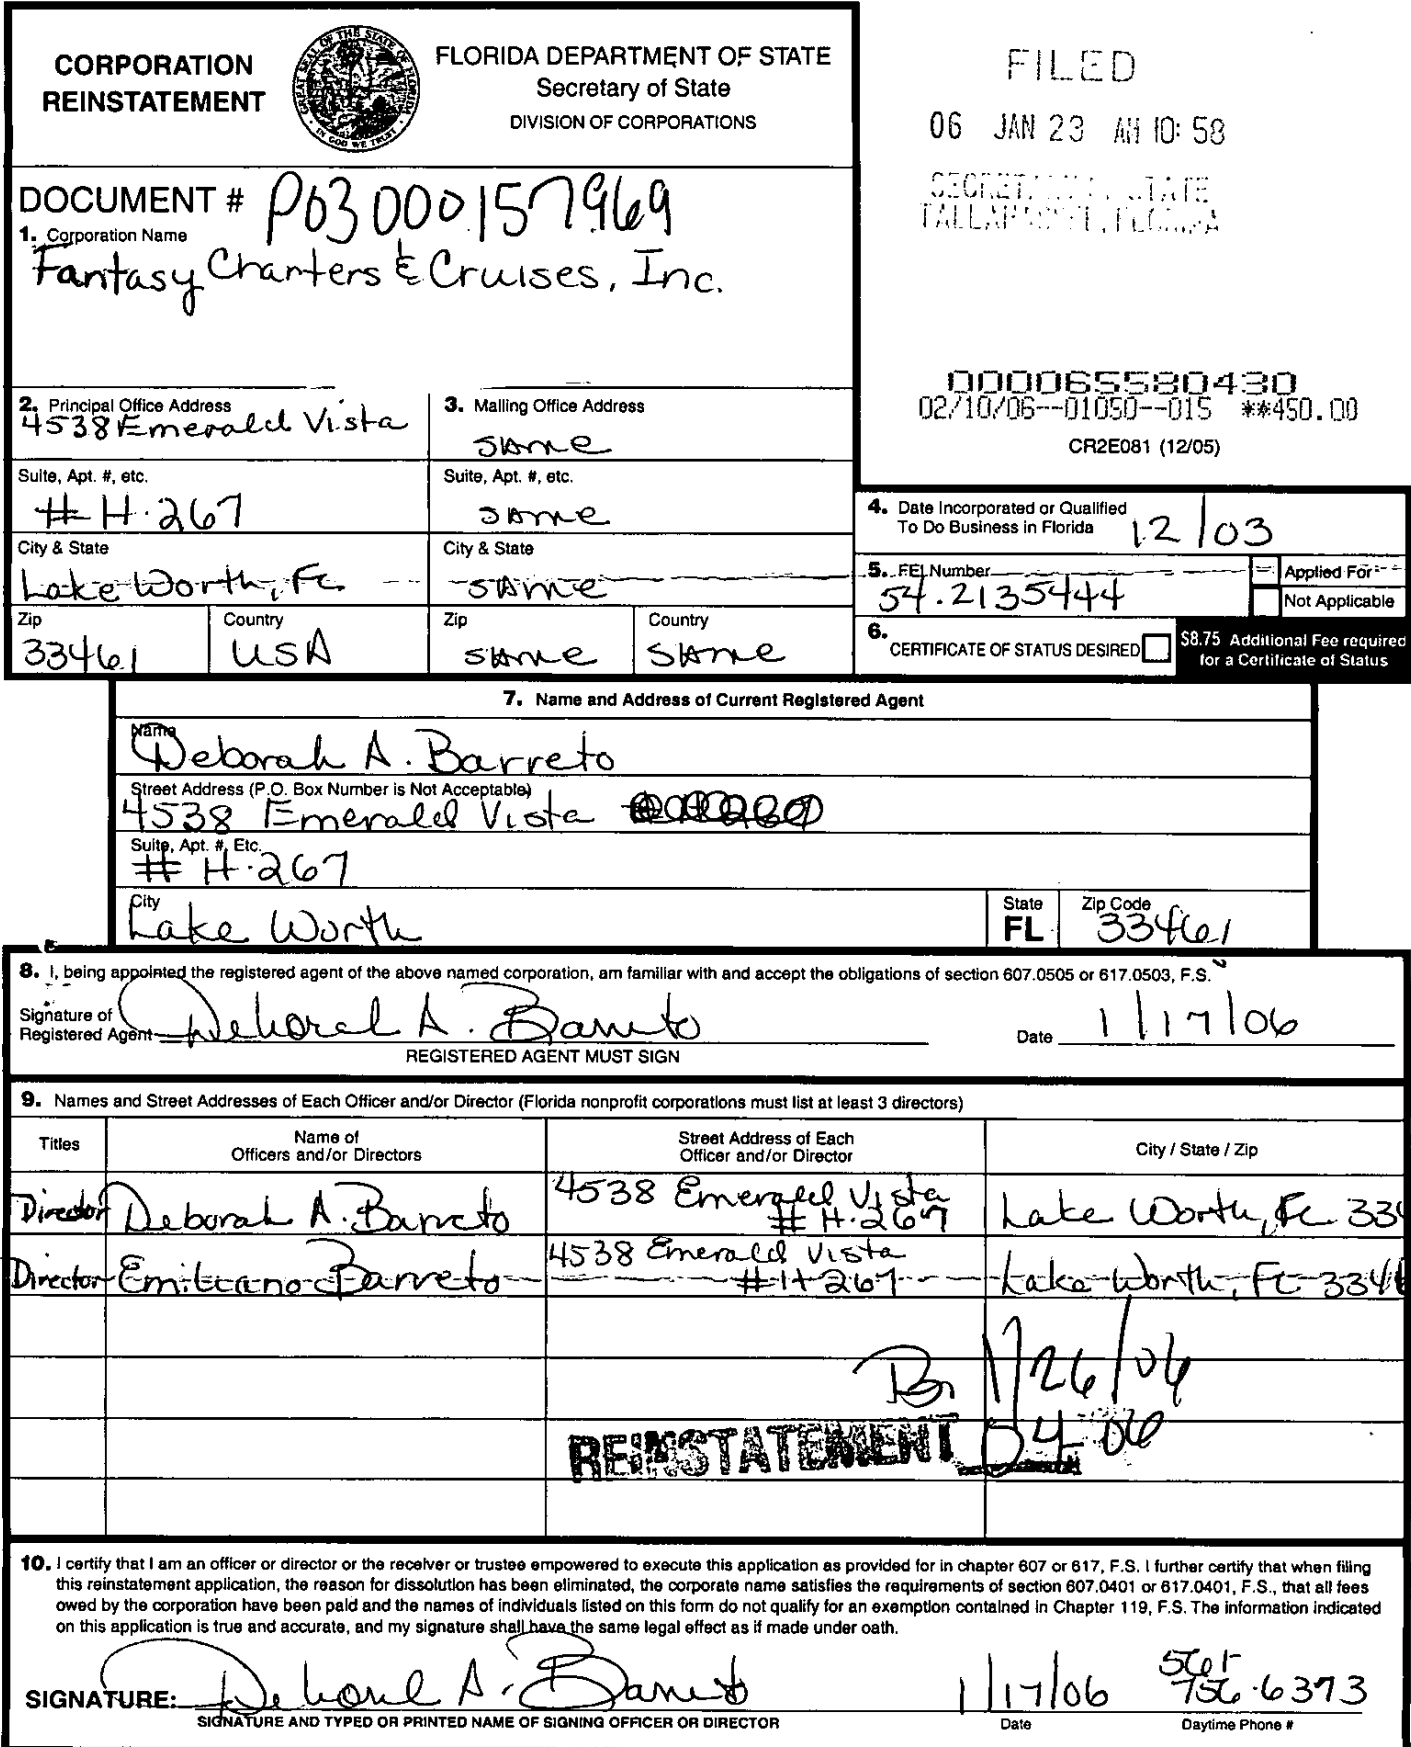 CORPORATION
REINSTATEMENT
GREAT SEAL OF THE STATE OF FLORIDA
IN GOD WE TRUST
FLORIDA DEPARTMENT OF STATE
Secretary of State
DIVISION OF CORPORATIONS
FILED
06 JAN 23 AM 10:58
TALLAHASSEE, FLORIDA
DOCUMENT # P03000157969
1. Corporation Name
Fantasy Charters & Cruises, Inc.
000065580430
02/10/06--01050--015 **450.00
CR2E081 (12/05)
2. Principal Office Address
4538 Emerald Vista
3. Mailing Office Address
SAme
Suite, Apt. #, etc.
# H.267
Suite, Apt. #, etc.
SAme
City & State
Lake Worth, FL
City & State
SAme
Zip
33461
Country
USA
Zip
SAme
Country
SAme
4. Date Incorporated or Qualified
To Do Business in Florida 12/03
5. FEI Number
54.2135444
Applied For
Not Applicable
6. CERTIFICATE OF STATUS DESIRED
$8.75 Additional Fee required
for a Certificate of Status
7. Name and Address of Current Registered Agent
Name
Deborah A. Barreto
Street Address (P.O. Box Number is Not Acceptable)
4538 Emerald Vista
Suite, Apt. #, Etc.
# H.267
City
Lake Worth
State
FL
Zip Code
33461
8. I, being appointed the registered agent of the above named corporation, am familiar with and accept the obligations of section 607.0505 or 617.0503, F.S.
Signature of
Registered Agent Deborah A. Barreto
Date 1/17/06
REGISTERED AGENT MUST SIGN
9. Names and Street Addresses of Each Officer and/or Director (Florida nonprofit corporations must list at least 3 directors)
Titles
Name of
Officers and/or Directors
Street Address of Each
Officer and/or Director
City / State / Zip
Director Deborah A. Barreto 4538 Emerald Vista # H.267 Lake Worth, FL 334
Director Emiliano Barreto 4538 Emerald Vista # H 267 Lake Worth, FL 3346
1/26/06
REINSTATEMENT 04-06
10. I certify that I am an officer or director or the receiver or trustee empowered to execute this application as provided for in chapter 607 or 617, F.S. I further certify that when filing
this reinstatement application, the reason for dissolution has been eliminated, the corporate name satisfies the requirements of section 607.0401 or 617.0401, F.S., that all fees
owed by the corporation have been paid and the names of individuals listed on this form do not qualify for an exemption contained in Chapter 119, F.S. The information indicated
on this application is true and accurate, and my signature shall have the same legal effect as if made under oath.
SIGNATURE: Deborah A. Barreto 1/17/06 561-756-6373
SIGNATURE AND TYPED OR PRINTED NAME OF SIGNING OFFICER OR DIRECTOR
Date
Daytime Phone #